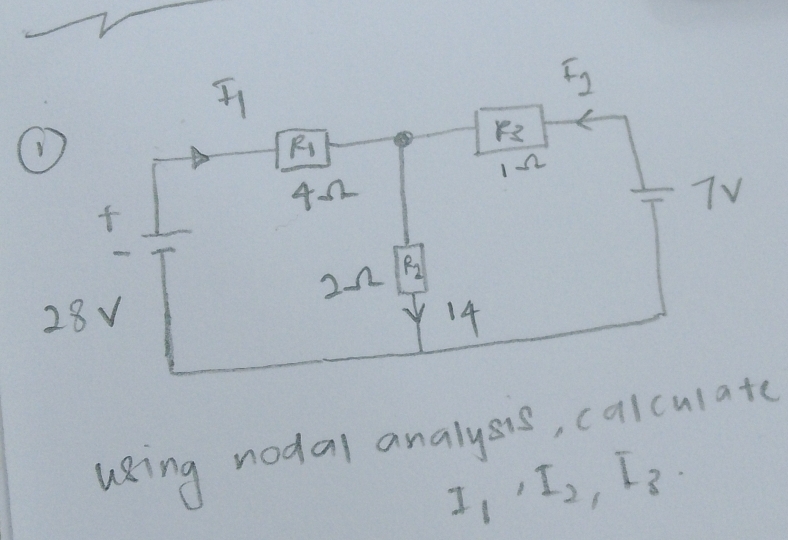 ①
I1
R1
4Ω
R3
1Ω
I2
+
-
28V
2Ω
R2
14
7V
using nodal analysis, calculate
I1, I2, I3.